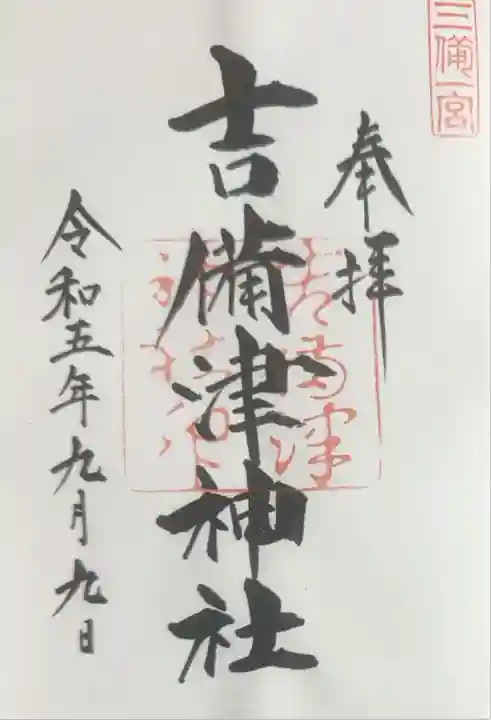 三備一宮
奉拝
吉備津神社
令和五年九月九日